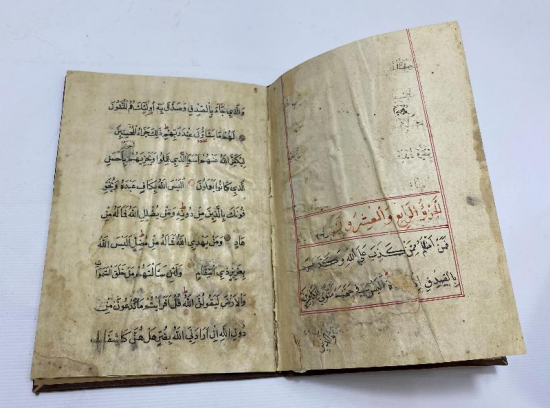 الجزو الرابع والعشرون
فمن اظلم ممن كذب على الله وكذب
بالصدق اذ جاءه اليس في جهنم مثوى للكافرين
والذي جاء بالصدق وصدق به اولئك هم المتقون
لهم ما يشاؤن عند ربهم ذلك جزاء المحسنين
ليكفر الله عنهم اسوا الذي عملوا ويجزيهم باحسن
الذي كانوا يعملون اليس الله بكاف عبده ويخو
فونك بالذين من دونه ومن يضلل الله فما له من
هاد ومن يهدي الله فما له من مضل اليس الله
بعزيز ذي انتقام ولئن سالتهم من خلق السموات
والارض ليقولن الله قل افرايتم ما تدعون من
دون الله ان ارادني الله بضر هل هن كاشفات